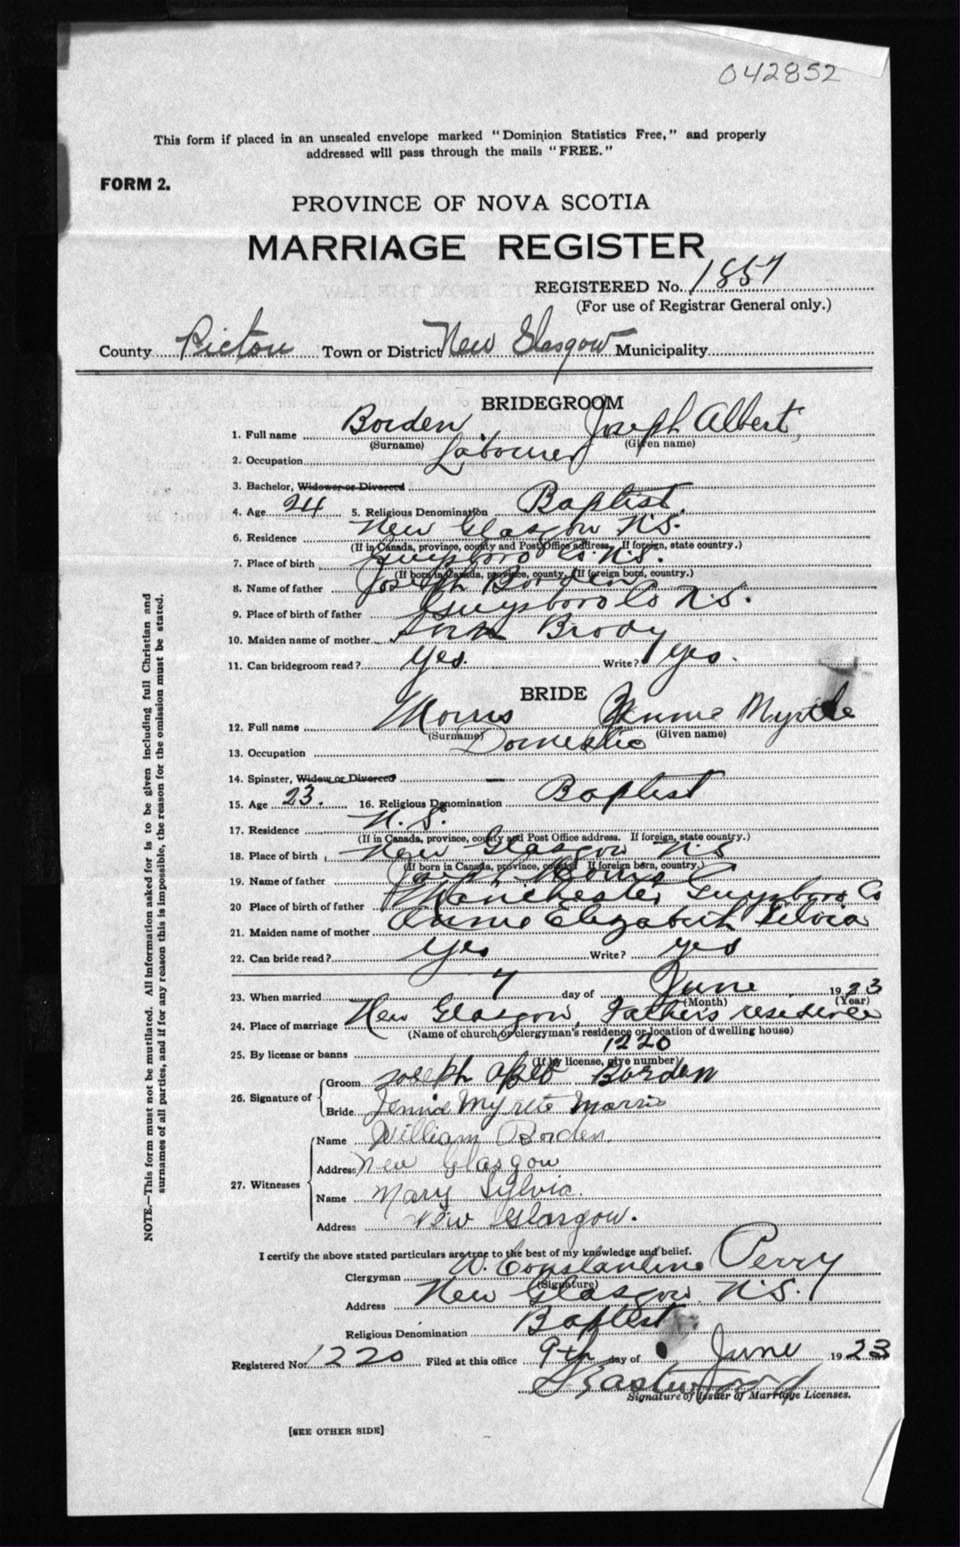 042852
This form if placed in an unsealed envelope marked "Dominion Statistics Free," and properly
addressed will pass through the mails "FREE."
FORM 2.
PROVINCE OF NOVA SCOTIA
MARRIAGE REGISTER
REGISTERED No. 1857
(For use of Registrar General only.)
County Pictou Town or District New Glasgow Municipality
BRIDEGROOM
1. Full name Borden Joseph Albert,
(Surname) (Given name)
2. Occupation Labourer
3. Bachelor, Widower or Divorced
4. Age 24 5. Religious Denomination Baptist
6. Residence New Glasgow N.S.
(If in Canada, province, county and Post Office address. If foreign, state country.)
7. Place of birth Guysboro Co. N.S.
(If born in Canada, province, county. If foreign born, country.)
8. Name of father Joseph Borden
9. Place of birth of father Guysboro Co N.S.
10. Maiden name of mother Brody
11. Can bridegroom read? Yes. Write? Yes.
BRIDE
12. Full name Morris Myrtle
(Surname) (Given name)
13. Occupation Domestic
14. Spinster, Widow or Divorced —
15. Age 23. 16. Religious Denomination Baptist
17. Residence N.S.
(If in Canada, province, county and Post Office address. If foreign, state country.)
18. Place of birth New Glasgow N.S
(If born in Canada, province, county. If foreign born, country.)
19. Name of father Morris
20 Place of birth of father Manchester Guysboro Co
21. Maiden name of mother Annie Elizabeth Silvia
22. Can bride read? Yes Write? yes
23. When married 7 day of June 1923
(Month) (Year)
24. Place of marriage New Glasgow, Father's residence
(Name of church or clergyman's residence or location of dwelling house)
25. By license or banns 1220
(If by license, give number)
26. Signature of
Groom Joseph Borden
Bride Jennie Myrtle Morris
27. Witnesses
Name William Borden.
Address New Glasgow
Name Mary Sylvia.
Address New Glasgow.
I certify the above stated particulars are true to the best of my knowledge and belief.
Clergyman W. Constantine Perry
(Signature)
Address New Glasgow, N.S.
Religious Denomination Baptist
Registered No. 1220 Filed at this office 9th day of June 1923
Eastwood
Signature of Issuer of Marriage Licenses.
[SEE OTHER SIDE]
NOTE.—This form must not be mutilated. All information asked for is to be given including full Christian and
surnames of all parties, and if for any reason this is impossible, the reason for the omission must be stated.